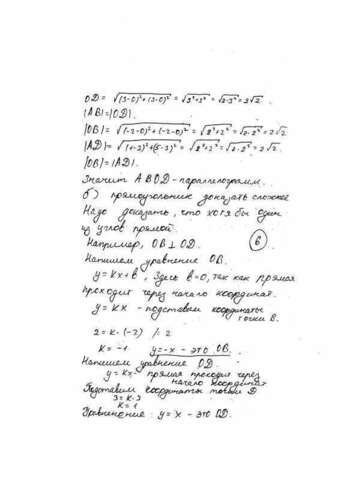 OD = √(3-0)²+(3-0)² = √3²+3² = √2·3² = 3√2
|AB|=|OD|.
|OB| = √(-2-0)²+(-2-0)² = √2²+2² = √2·2² = 2√2
|AD| = √(1-3)²+(5-3)² = √2²+2² = √2·2² = 2√2.
|OB|=|AD|.
Значит ABOD - параллелограмм.
б) прямоугольник доказать сложнее
Надо доказать, что хотя бы один
из углов прямой.
Например, OB ⊥ OD.
6
Напишем уравнение OB.
y = kx + b, Здесь b=0, так как прямая
проходит через начало координат.
y = kx - подставим координаты
точки B.
2 = k·(-2) /: 2
k = -1 y=-x - это OB.
Напишем уравнение OD.
y = kx - прямая проходит через
начало координат
Подставим координаты точки D
3 = k·3
k = 1
Уравнение: y = x - это OD.